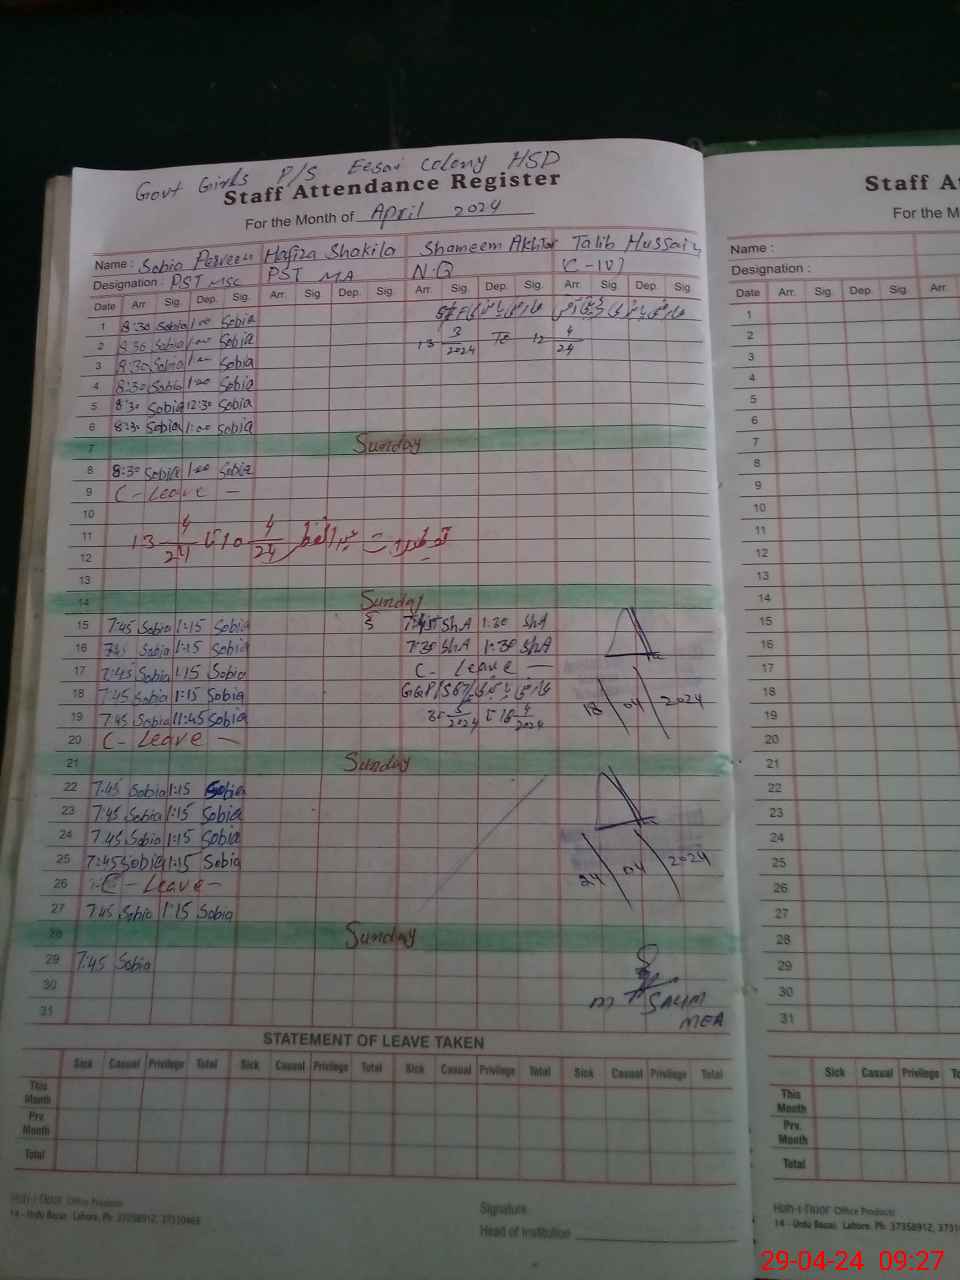 Govt Girls P/S Eesai Colony HSD
Staff Attendance Register
For the Month of April 2024
Name : Sobia Perveen Hafiza Shakila Shameem Akhtar Talib Hussain
Designation : PST MSC PST MA N.Q (C-IV)
Date Arr. Sig. Dep. Sig. Arr. Sig Dep. Sig. Arr. Sig. Dep. Sig. Arr. Sig. Dep. Sig.
1 8:30 Sobia 1:00 Sobia
2 8:30 Sobia 1:00 Sobia 13 3/2024 To 12 4/24
3 8:30 Sobia 1:00 Sobia
4 8:30 Sobia 1:00 Sobia
5 8:30 Sobia 12:30 Sobia
6 8:30 Sobia 1:00 Sobia
7 Sunday
8 8:30 Sobia 1:00 Sobia
9 C-Leave —
10
11 13 4/24 تا 10 4/24
12
13
14 Sunday
15 7:45 Sobia 1:15 Sobia 7:45 ShA 1:30 ShA
16 7:45 Sobia 1:15 Sobia 7:30 ShA 1:30 ShA
17 7:45 Sobia 1:15 Sobia C- Leave —
18 7:45 Sobia 1:15 Sobia 18/04/2024
19 7:45 Sobia 11:45 Sobia
20 C- Leave —
21 Sunday
22 7:45 Sobia 1:15 Sobia
23 7:45 Sobia 1:15 Sobia
24 7:45 Sobia 1:15 Sobia
25 7:45 Sobia 1:15 Sobia 24/04/2024
26 C-Leave-
27 7:45 Sobia 1:15 Sobia
28 Sunday
29 7:45 Sobia
30 M SALIM
31 MEA
STATEMENT OF LEAVE TAKEN
Sick Casual Privilege Total Sick Casual Privilege Total Sick Casual Privilege Total Sick Casual Privilege Total
This Month
Prv. Month
Total
Office Products
14 - Urdu Bazar, Lahore, Ph: 37358912, 37310468
Signature
Head of Institution
Staff A
For the M
Name :
Designation :
Date Arr. Sig. Dep. Sig. Arr.
1
2
3
4
5
6
7
8
9
10
11
12
13
14
15
16
17
18
19
20
21
22
23
24
25
26
27
28
29
30
31
Sick Casual Privilege
This Month
Prv. Month
Total
Office Products
14 - Urdu Bazar, Lahore, Ph: 37358912, 3731
29-04-24 09:27